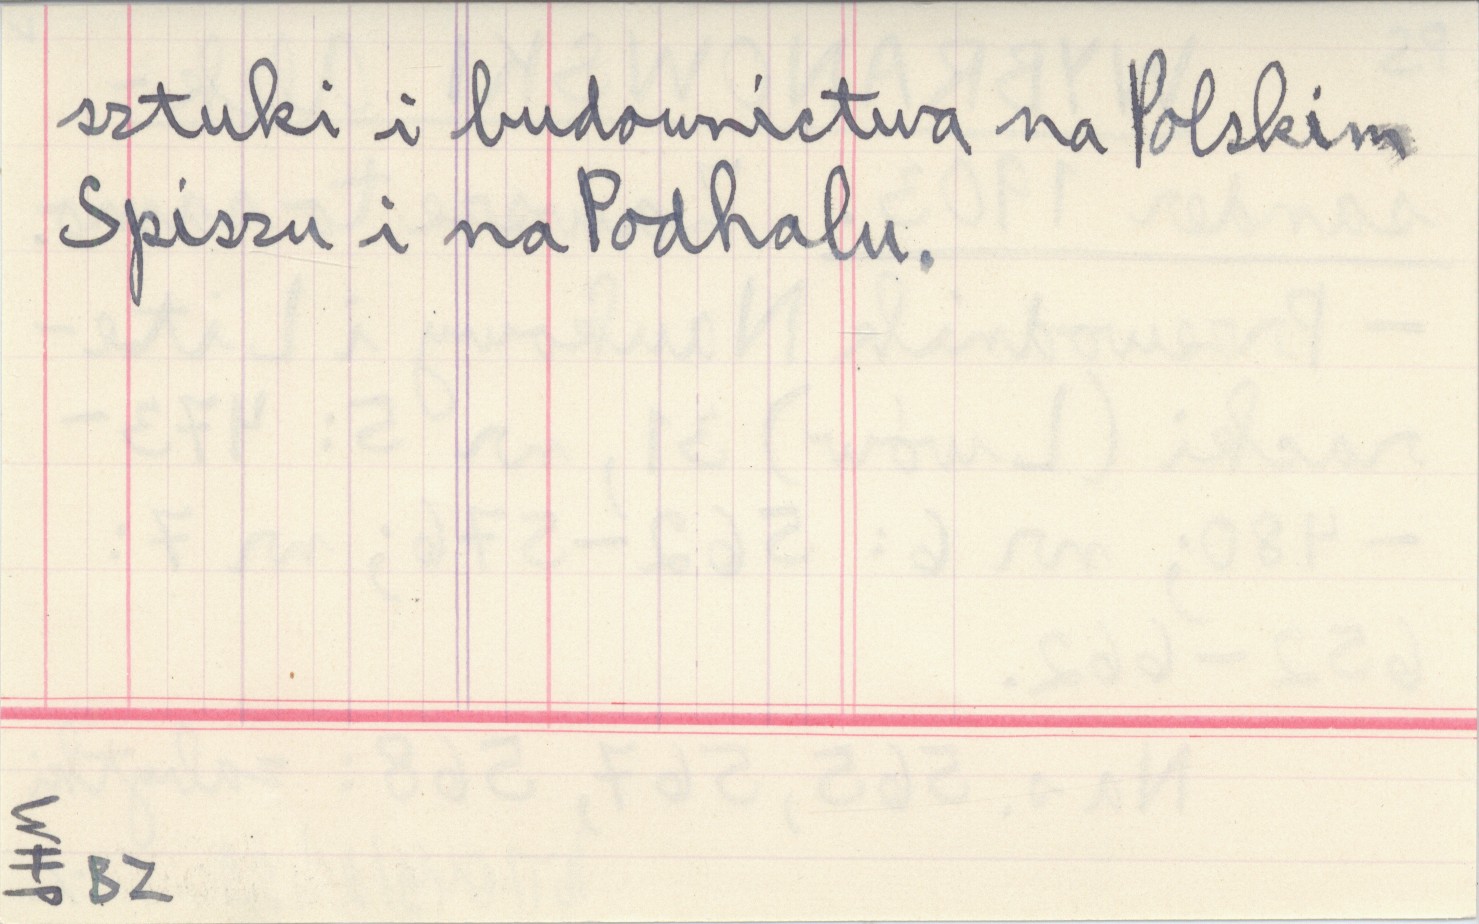 sztuki i budownictwa na Polskim
Spiszu i na Podhalu.
BZ